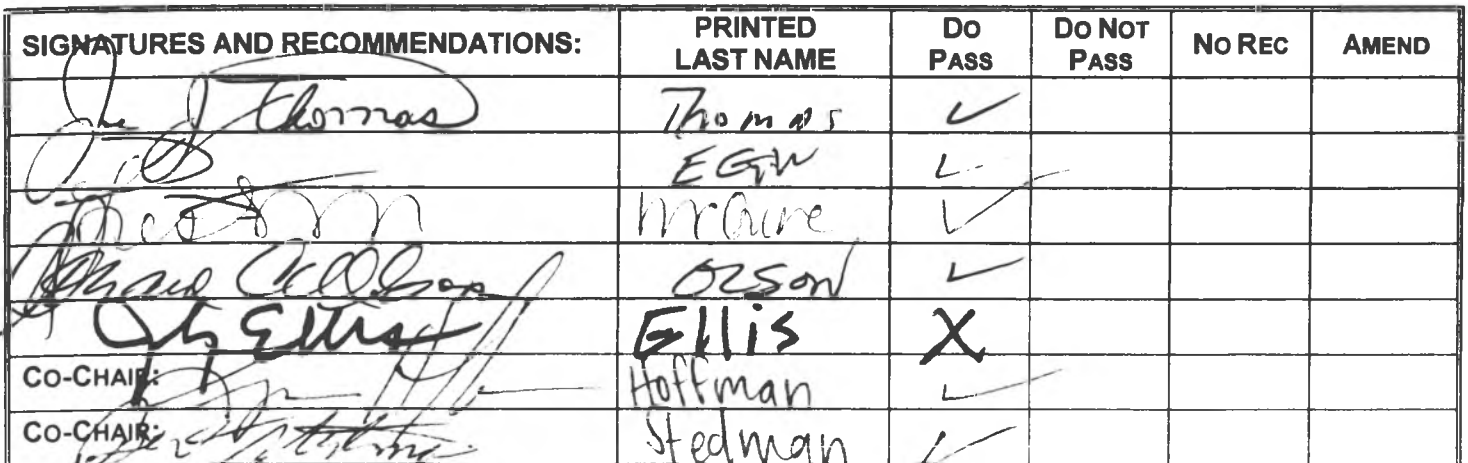 SIGNATURES AND RECOMMENDATIONS: PRINTED LAST NAME DO PASS DO NOT PASS NO REC AMEND
Joe J Thomas Thomas ✓
EGW ✓
✓
OLSON ✓
Ellis Ellis X
CO-CHAIR: Hoffman ✓
CO-CHAIR: Stedman ✓